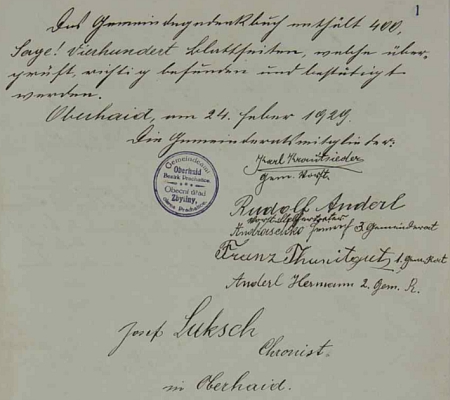 1
Das Gemeindegedenkbuch enthält 400,
Sage! Vierhundert Blattseiten, welche über-
prüft, richtig befunden und bestätigt
werden.
Oberhaid, am 24. feber 1929.
Die Gemeinderatsmitglieder:
Karl Krautsieder
Gem. Vorst.
Gemeindeamt
Oberhaid
Bezirk Prachatitz.
Obecní úřad
Zbytiny,
okres Prachatice.
Rudolf Anderl
Vorst. Stellvertreter
3. Gemeinderat
Franz 1. Gem. Rat
Anderl Hermann 2. Gem. R.
Josef Luksch
Chronist
in Oberhaid.